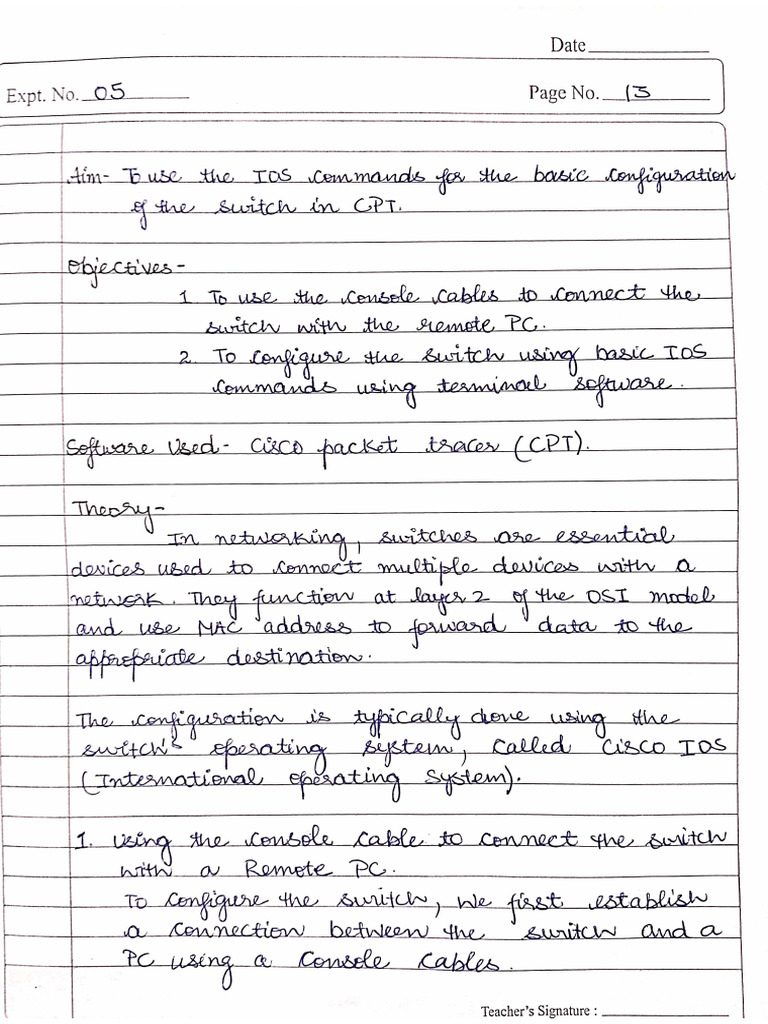 Date
Expt. No. 05
Page No. 13
Aim- To use the IOS commands for the basic configuration
of the switch in CPT.
Objectives-
1. To use the console cables to connect the
switch with the remote PC.
2. To configure the switch using basic IOS
commands using terminal software.
Software Used- Cisco packet tracer (CPT).
Theory-
In networking, switches are essential
devices used to connect multiple devices with a
network. They function at layer 2 of the OSI model
and use MAC address to forward data to the
appropriate destination.
The configuration is typically done using the
switch's operating system, called Cisco IOS
(International operating system).
1. Using the console cable to connect the switch
with a Remote PC.
To configure the switch, we first establish
a connection between the switch and a
PC using a console cables.
Teacher's Signature :